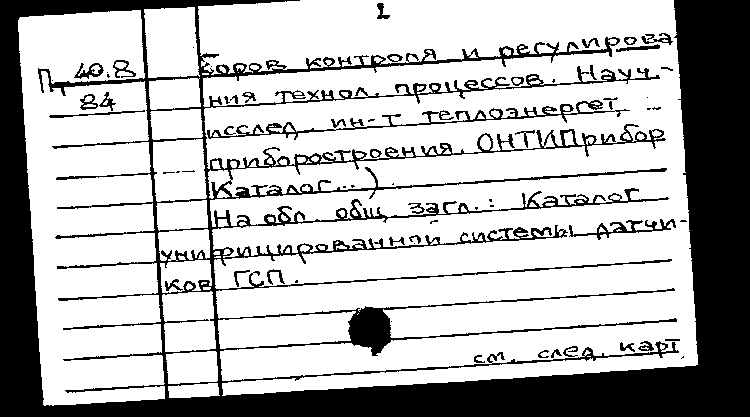 1
Пт 40.8
84
боров контроля и регулирова-
ния технол. процессов. Науч.-
исслед. ин-т теплоэнергет.
приборостроения. ОНТИПрибор
Каталог...)
На обл. общ. загл.: Каталог
унифицированной системы датчи-
ков ГСП.
см. след. карт